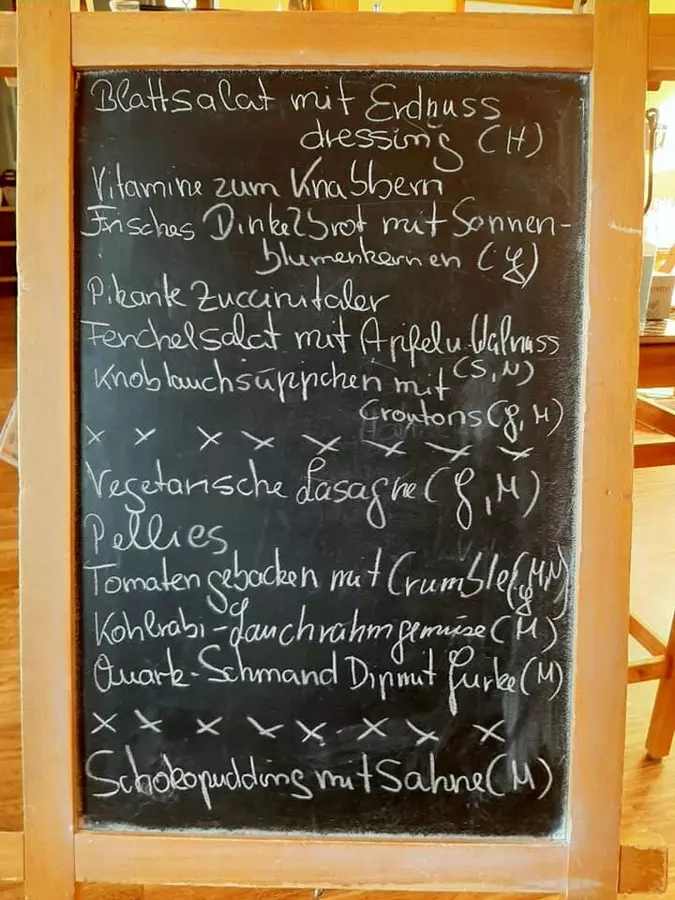 Blattsalat mit Erdnuss
dressing (H)
Vitamine zum Knabbern
Frisches Dinkelbrot mit Sonnen-
blumenkernen (G)
Pikante Zuccinitaler
Fenchelsalat mit Apfel u. Walnuss
(S, N)
Knoblauchsüppchen mit
Croutons (G, M)
x x x x x x x x
Vegetarische Lasagne (G, M)
Pellies
Tomaten gebacken mit Crumble (G, M, N)
Kohlrabi-Lauchrahmgemüse (M)
Quark-Schmand Dip mit Gurke (M)
x x x x x x x x
Schokopudding mit Sahne (M)